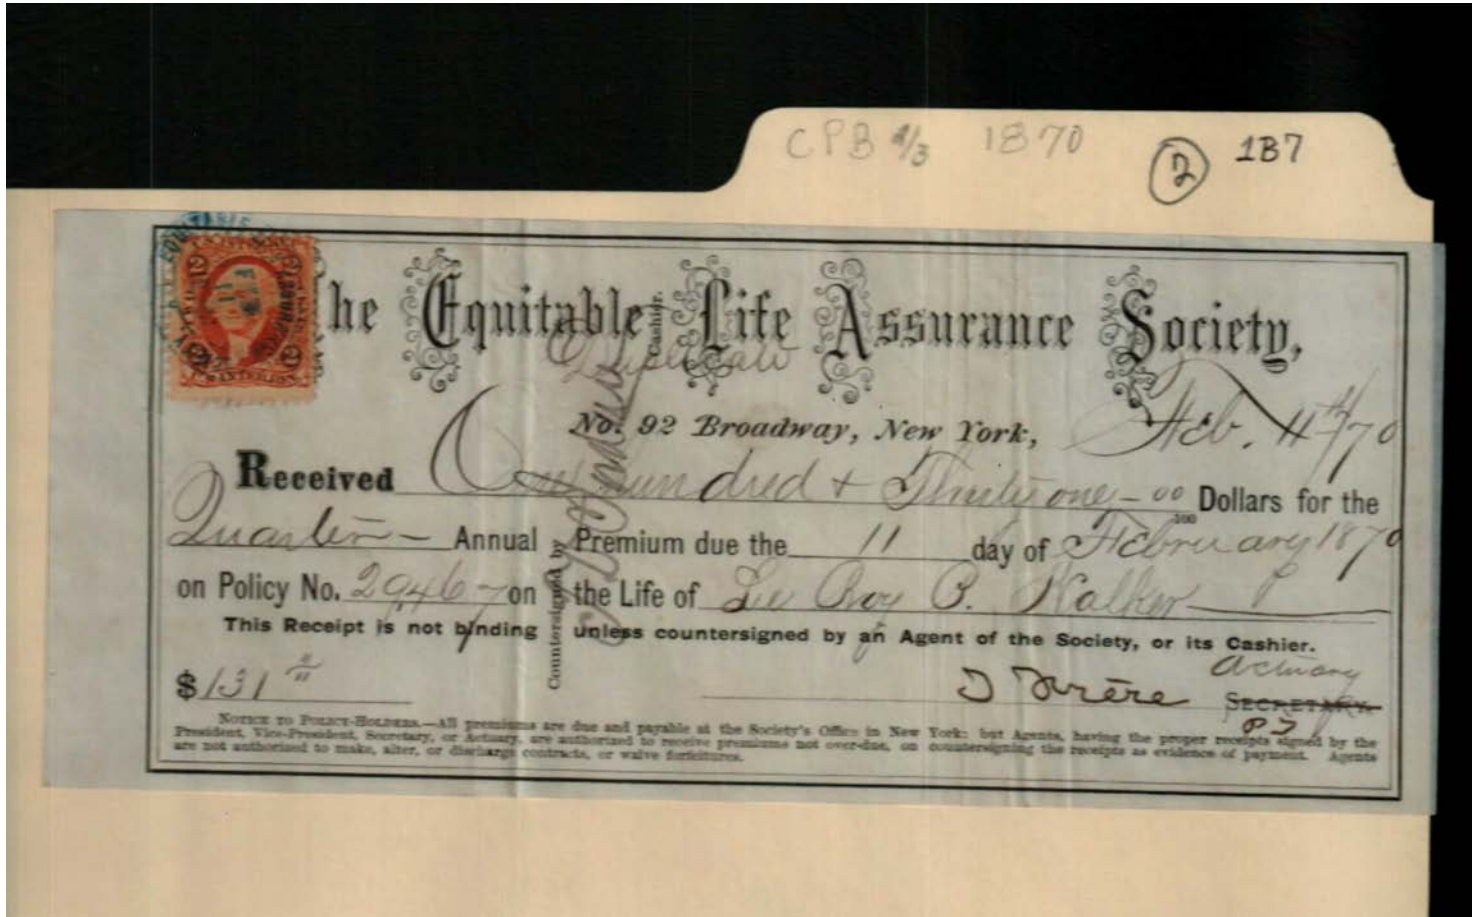 CPB 2/3 1870 2 1B7
The Equitable Life Assurance Society,
Duplicate
No. 92 Broadway, New York, Feb. 11th/70
Received One hundred + Thirty one - 00/100 Dollars for the
Quarter - Annual Premium due the 11 day of February 1870
on Policy No. 29467 on the Life of Le Roy P. Walker
This Receipt is not binding unless countersigned by an Agent of the Society, or its Cashier.
Actuary
$131
SECRETARY.
NOTICE TO POLICY-HOLDERS.—All premiums are due and payable at the Society's Office in New York: but Agents, having the proper receipts signed by the
President, Vice-President, Secretary, or Actuary, are authorized to receive premiums not over-due, on countersigning the receipts as evidence of payment. Agents
are not authorized to make, alter, or discharge contracts, or waive forfeitures.
Countersigned by
Cashier.
EQUITABLE
U.S. INTER.